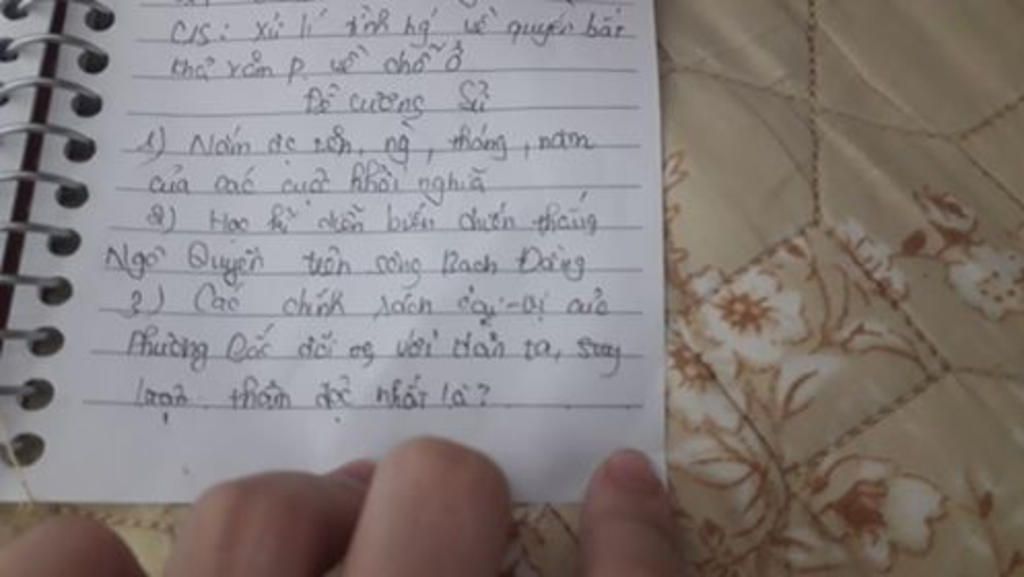 C15: Xử lí tình hg' về quyền bất
khả xâm p. về chỗ ở
Đề cương Sử
1) Nắm đc tên, ng, tháng, năm
của các cuộc khởi nghĩa
2) Học kĩ diễn biến chiến thắng
Ngô Quyền trên sông Bạch Đằng
3) Các chính sách cai-trị của
Phương Bắc đối vs với dân ta, suy
luận thâm độc nhất là?